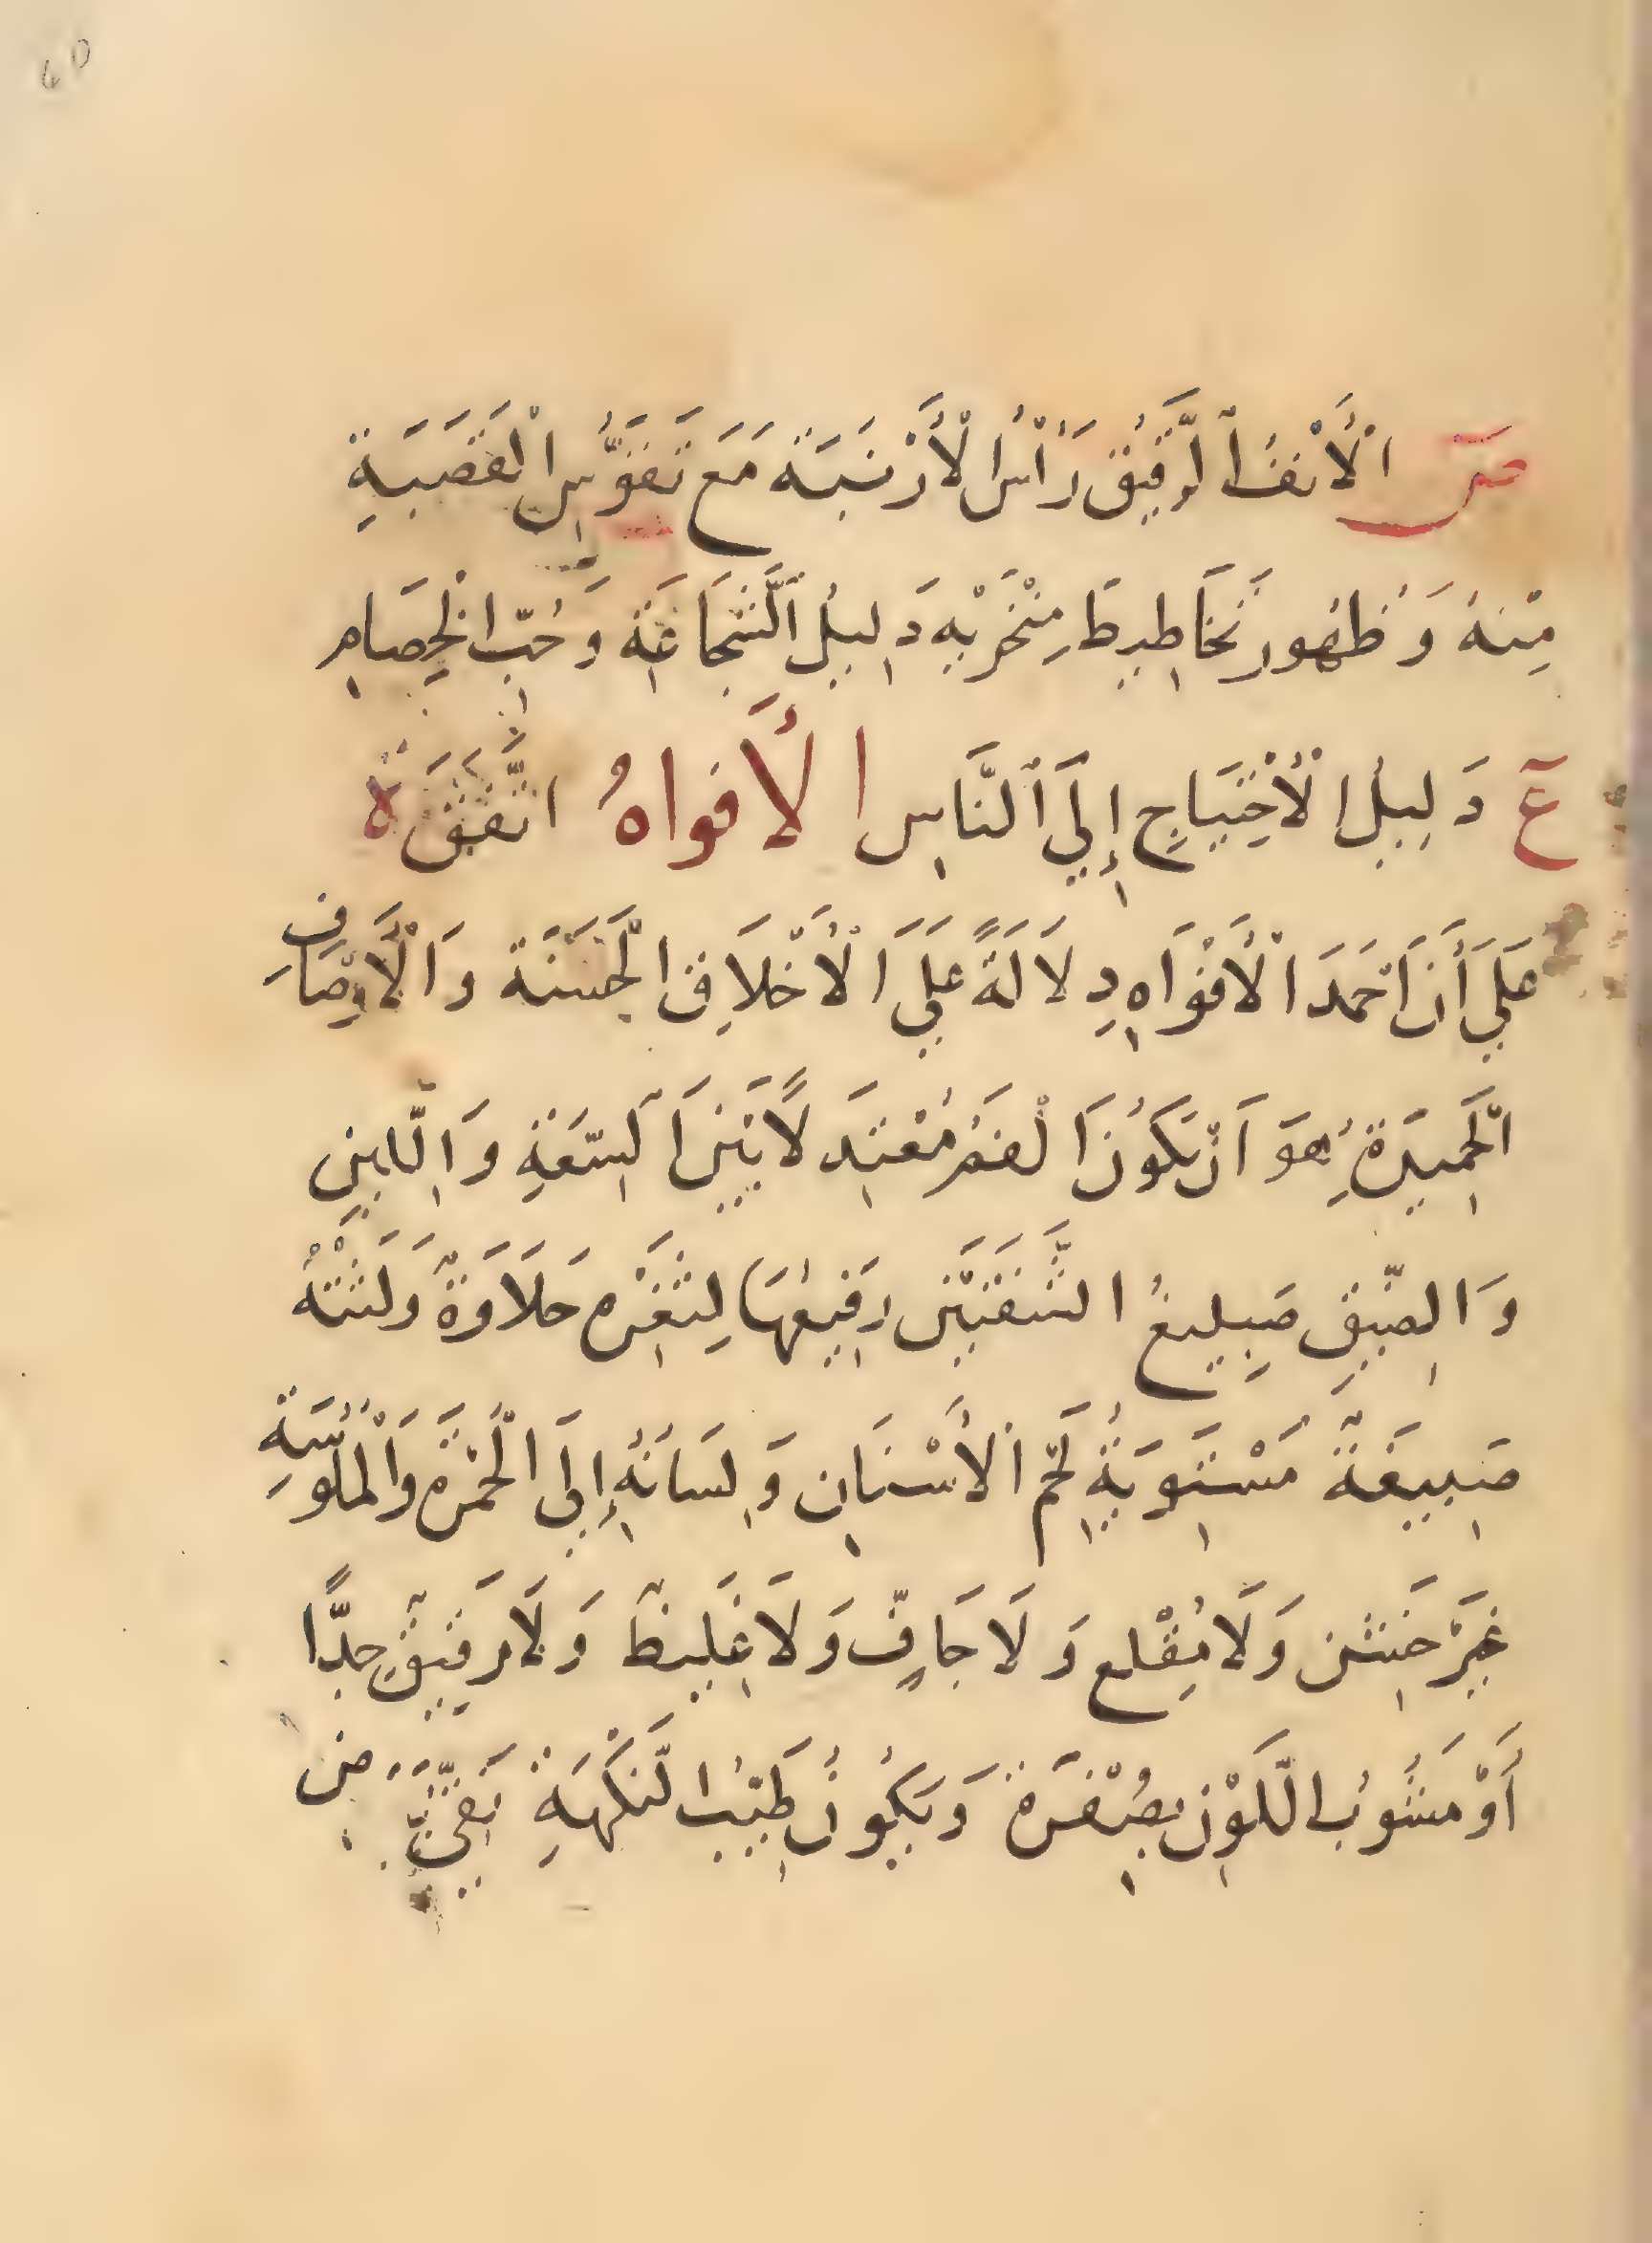 40
ص الْأَنْفُ الرَّقِيقُ رَأْسُ الْأَرْنَبَة مَعَ تَقَوُّسِ الْقَصَبَةِ
مِنْهُ وَظُهُور تَخَاطِيطَ مِنْخَرَيْهِ دَلِيلُ الشَّجَاعَة وَحُبّ الْخِصَامِ
عَ دَلِيلُ الْأحْتِيَاجِ إِلَي النَّاسِ الأَفواهُ اتَّفَقَ ةْ
عَلَي أَنَ اَحْمَدَ الْأَفْوَاهِ دِلَالَةً عَلَي الْأَخْلَاقِ الْحَسَنَة وَالْأَوْصَافِ
الْحَمِيدَةِ هُوَ اَنْ يَكُونَ الْفَمُ مُعْتَدِلًا بَيْنَ السّعَةِ وَاللّابِنِ
وَالضّيقِ صَبِيغُ الشَّفَتَيْن رَقِيعُهَا لِثَغْرِه حَلَاوَةٌ وَلَثَتُهُ
صَبِيغَةٌ مَسْتَوِيَةٌ لَحْم الْأَسْنَانِ وَلِسَانُهُ إِلَى الْحُمْرَه وَالْمَلُوسَةِ
غَيْرَ خَشِن وَلَا مُقْلَع وَلَا جَافٍّ وَلَا غَلِيظٌ وَلَا رَقِيقٍ جِدًّا
أَوْ مَشُوبُ اللَّوْنِ بِصُفْرَة وَيَكُونُ طَيِّبُ النَّكْهَةِ نَقِيٌّ مِن